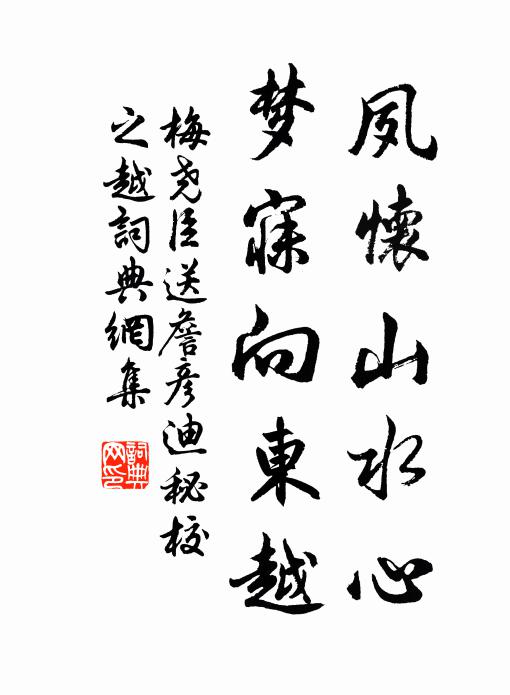 夙懷山水心
梦寐向東越
梅尧臣送詹彦迪秘校
之越詞典網集
詞典
网印